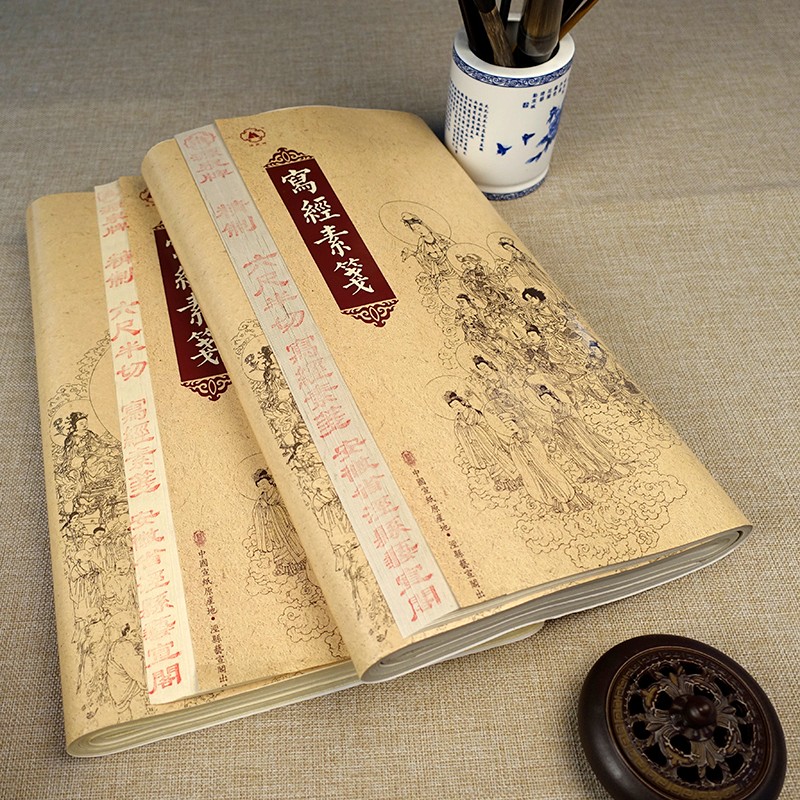 寫經素箋
牌 精制 六尺半切 寫經素箋 安徽省涇縣藝宣閣
中國宣紙原産地·涇縣藝宣閣出
經素箋
牌 精制 六尺半切 寫經素箋 安徽省涇縣藝宣閣
中國宣紙原産地·涇縣藝宣閣出